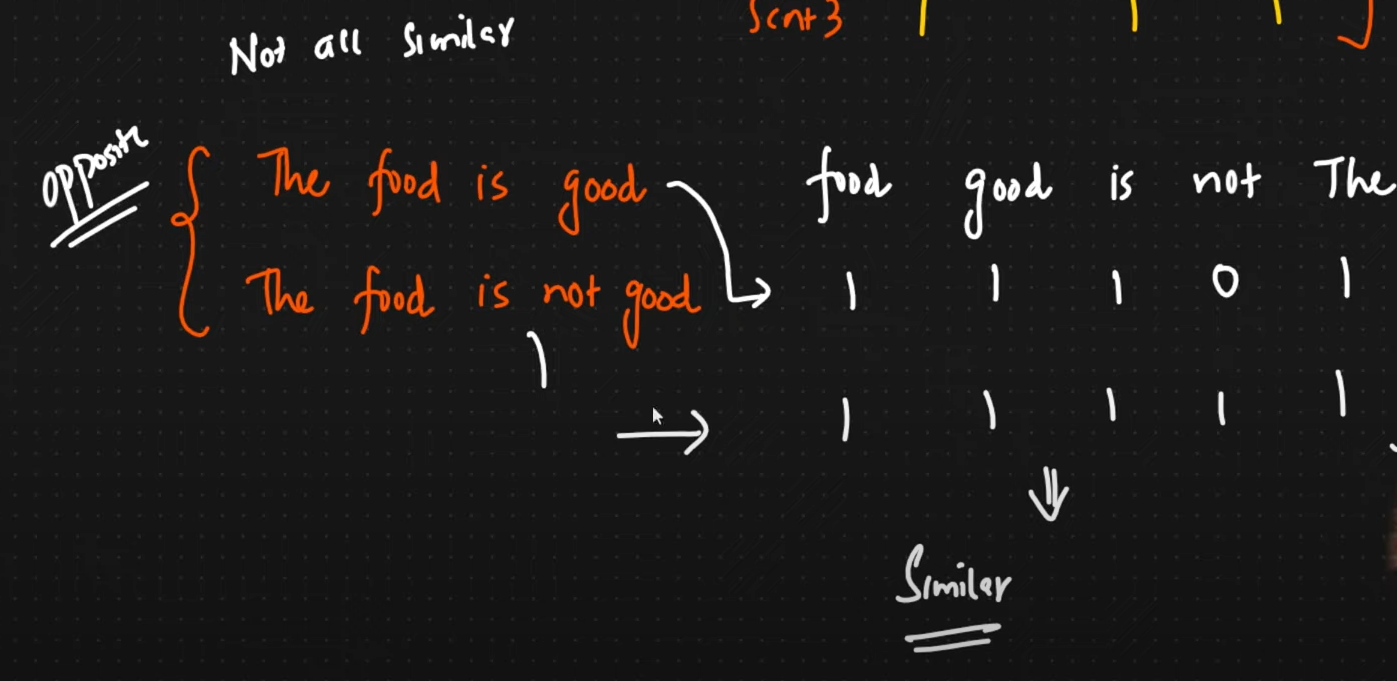 Scnt 3
Not all similar
opposite
The food is good
The food is not good
food good is not The
1 1 1 0 1
1 1 1 1 1
Similar